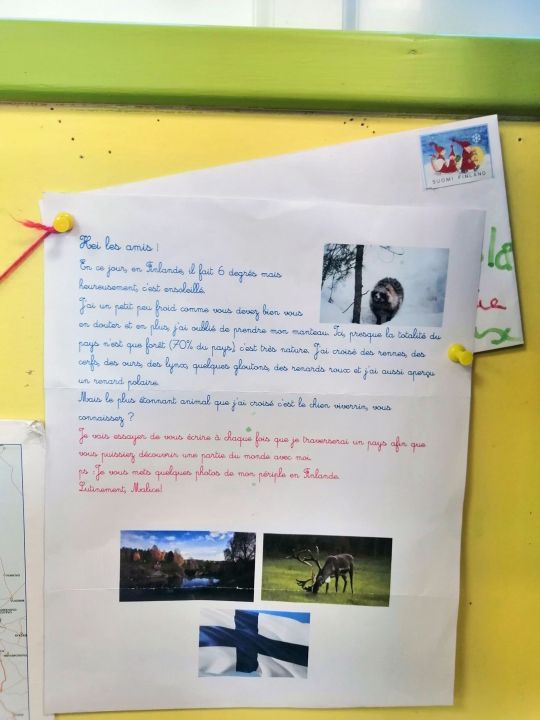 SUOMI FINLAND
Hei les amis !
En ce jour, en Finlande, il fait 6 degrés mais
heureusement, c'est ensoleillé.
J'ai un petit peu froid comme vous devez bien vous
en douter et en plus, j'ai oublié de prendre mon manteau. Ici, presque la totalité du
pays n'est que forêt (70% du pays) c'est très nature. J'ai croisé des rennes, des
cerfs, des ours, des lynx, quelques gloutons, des renards roux et j'ai aussi aperçu
un renard polaire.
Mais le plus étonnant animal que j'ai croisé c'est le chien viverrin, vous
connaissez ?
Je vais essayer de vous écrire à chaque fois que je traverserai un pays afin que
vous puissiez découvrir une partie du monde avec moi.
ps : Je vous mets quelques photos de mon périple en Finlande.
Lutinement, Malice!